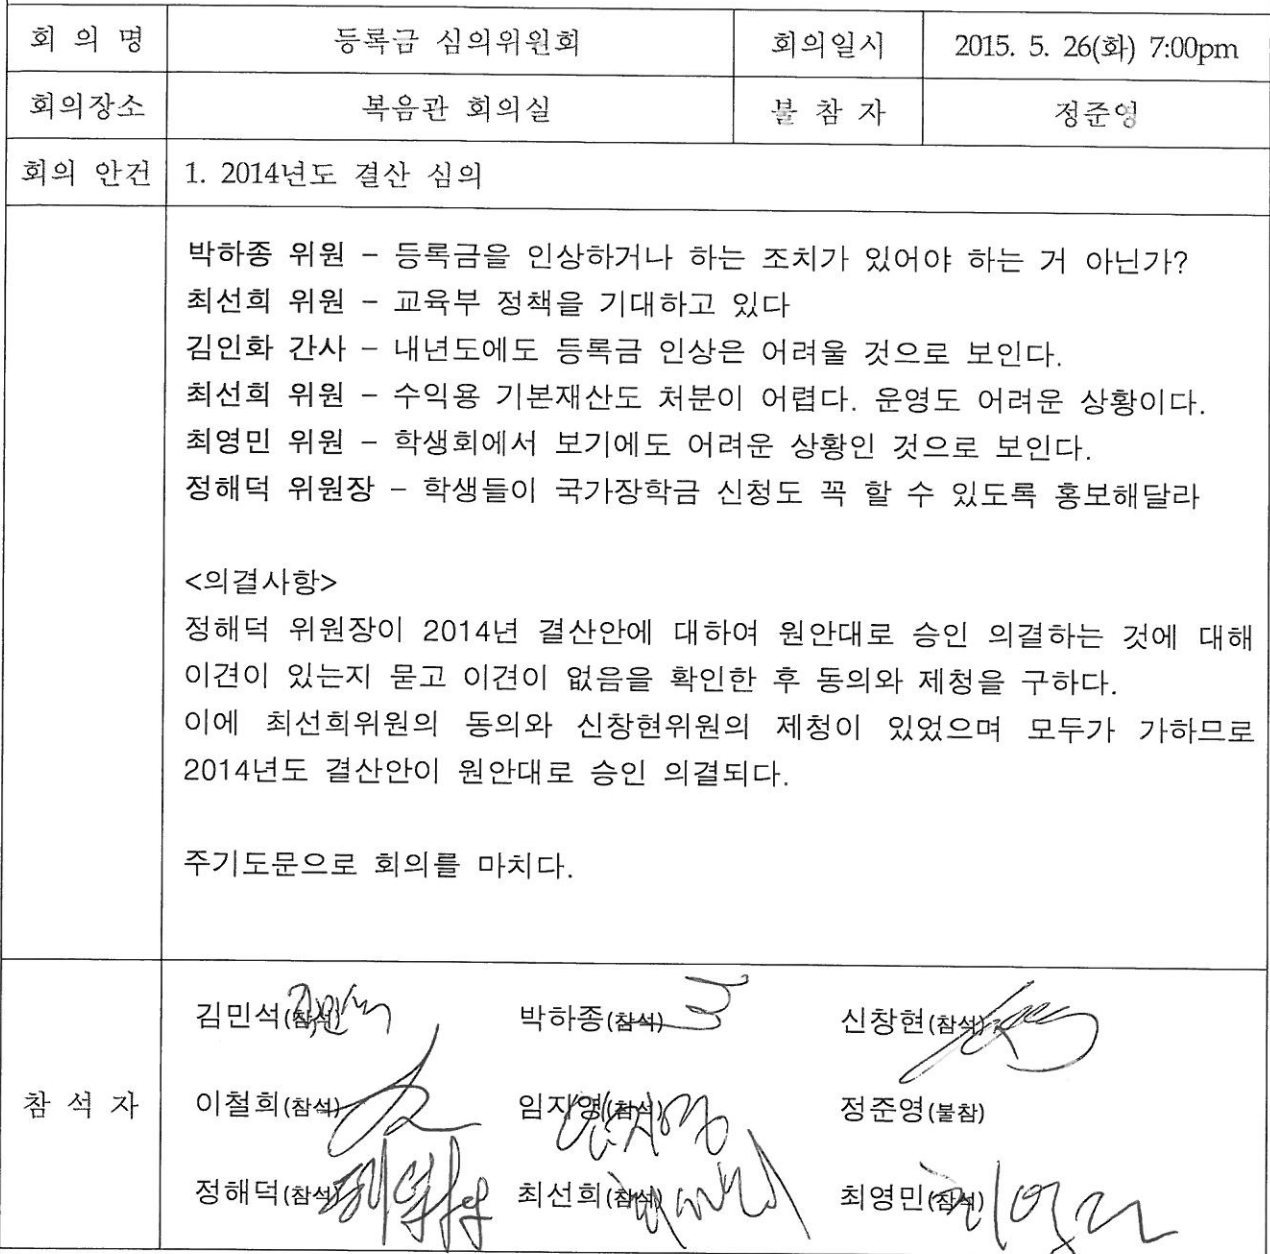 회 의 명 등록금 심의위원회 회의일시 2015. 5. 26(화) 7:00pm
회의장소 복음관 회의실 불 참 자 정준영
회의 안건 1. 2014년도 결산 심의
박하종 위원 – 등록금을 인상하거나 하는 조치가 있어야 하는 거 아닌가?
최선희 위원 – 교육부 정책을 기대하고 있다
김인화 간사 – 내년도에도 등록금 인상은 어려울 것으로 보인다.
최선희 위원 – 수익용 기본재산도 처분이 어렵다. 운영도 어려운 상황이다.
최영민 위원 – 학생회에서 보기에도 어려운 상황인 것으로 보인다.
정해덕 위원장 – 학생들이 국가장학금 신청도 꼭 할 수 있도록 홍보해달라
<의결사항>
정해덕 위원장이 2014년 결산안에 대하여 원안대로 승인 의결하는 것에 대해
이견이 있는지 묻고 이견이 없음을 확인한 후 동의와 제청을 구하다.
이에 최선희위원의 동의와 신창현위원의 제청이 있었으며 모두가 가하므로
2014년도 결산안이 원안대로 승인 의결되다.
주기도문으로 회의를 마치다.
김민석(참석) 박하종(참석) 신창현(참석)
참 석 자 이철희(참석) 임자영(참석) 정준영(불참)
정해덕(참석) 최선희(참석) 최영민(참석)